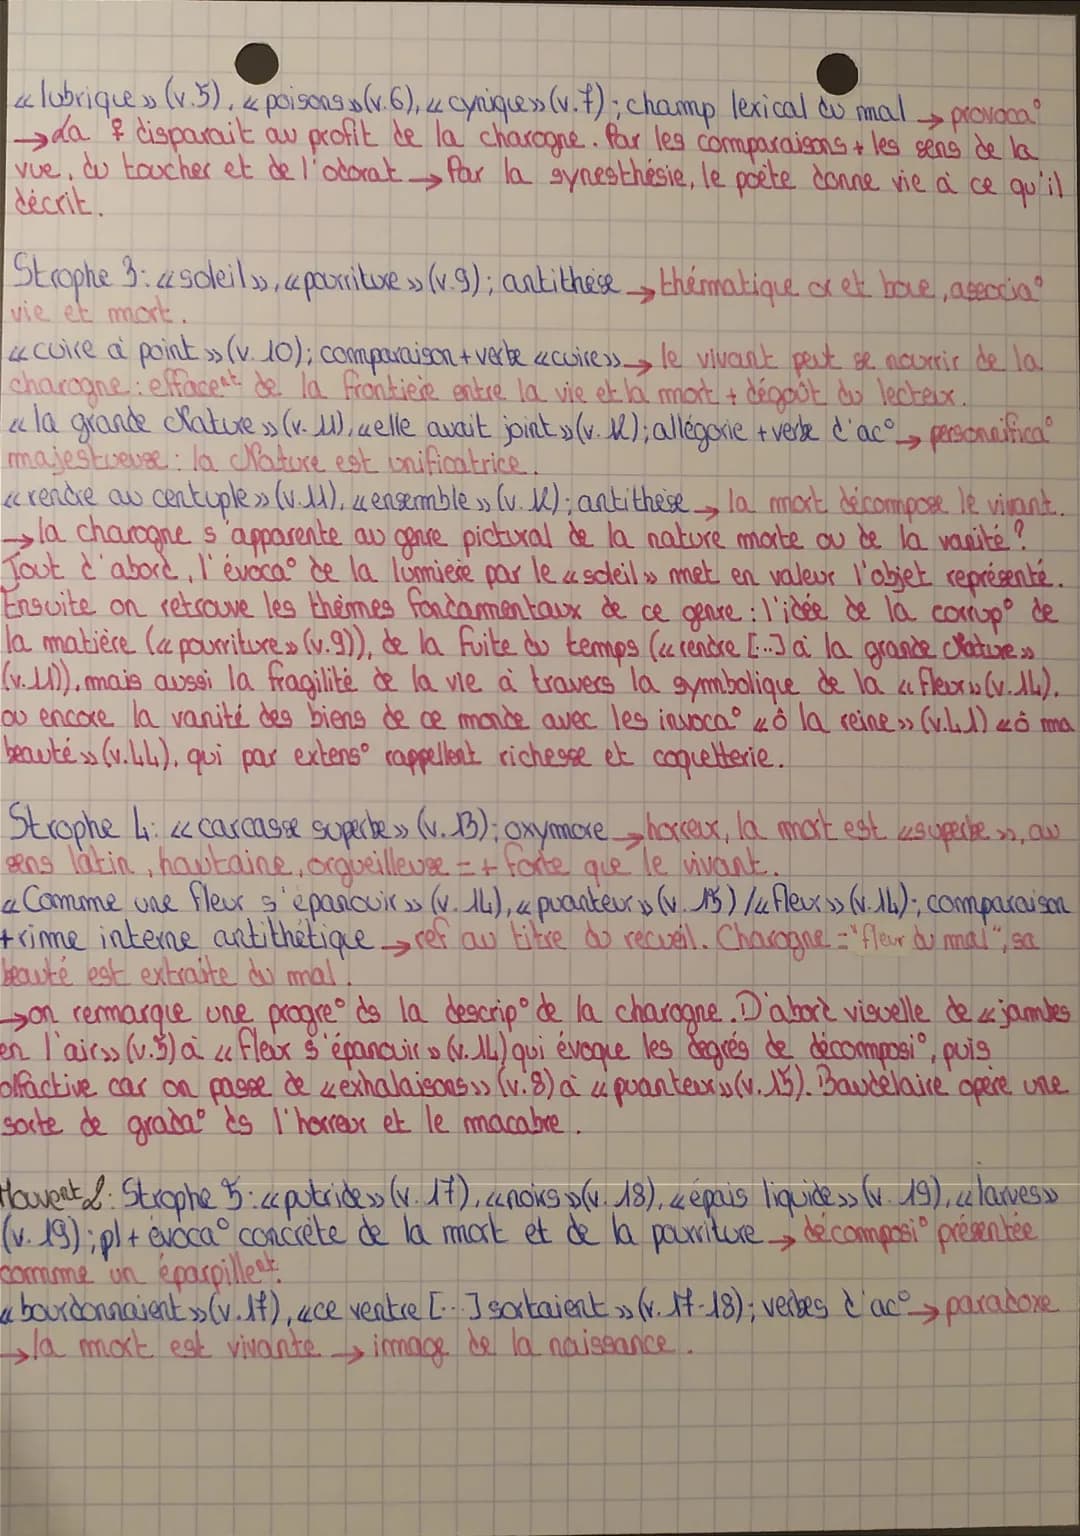 « lubrique » (v.5), « poisons » (v.6), « cynique » (v.7) ; champ lexical du mal → provoca°
→ La ♀ disparait au profit de la charogne. Par les comparaisons + les sens de la
vue, du toucher et de l'odorat → Par la synesthésie, le poète donne vie à ce qu'il
décrit.
Strophe 3: « soleil », « pourriture » (v.9) ; antithèse → thématique or et boue, associa°
vie et mort.
« cuire à point » (v. 10) ; comparaison + verbe « cuire » → le vivant peut se nourrir de la
charogne : effacent de la frontière entre la vie et la mort + dégoût du lecteur.
« la grande Nature » (v. 11), « elle avait joint » (v. 12) ; allégorie + verbe d'ac° → personnifica°
majestueuse : la Nature est unificatrice.
« rendre au centuple » (v.11), « ensemble » (v. 12) ; antithèse → la mort décompose le vivant.
→ la charogne s'apparente au genre pictural de la nature morte ou de la vanité ?
Tout d'abord, l'évoca° de la lumière par le « soleil » met en valeur l'objet représenté.
Ensuite on retrouve les thèmes fondammentaux de ce genre : l'idée de la corrup° de
la matière (« pourriture » (v.9)), de la fuite du temps (« rendre [...] à la grande Nature »
(v.11)), mais aussi la fragilité de la vie à travers la symbolique de la « fleur » (v.14).
ou encore la vanité des biens de ce monde avec les invoca° « ô la reine » (v.41) « ô ma
beauté » (v.44), qui par extens° rappellent richesse et coquetterie.
Strophe 4: « carcasse superbe » (v. 13) ; oxymore → horreur, la mort est « superbe », au
sens latin, hautaine, orgueilleuse = + forte que le vivant.
« Comme une fleur s'épanouir » (v. 14), « puanteur » (v. 15) / « fleur » (v. 14) ; comparaison
+ rime interne antithétique → ref au titre du recueil. Charogne = "fleur du mal", sa
beauté est extraite du mal.
→ on remarque une progre° ds la descrip° de la charogne. D'abord visuelle de « jambes
en l'air » (v.5) à « fleur s'épanouir » (v. 14) qui évoque les degrés de décomposi°, puis
olfactive car on passe de « exhalaisons » (v. 8) à « puanteur » (v. 15). Baudelaire opère une
sorte de grada° ds l'horreur et le macabre.
Mouvent 2: Strophe 5: « putride » (v. 17), « noirs » (v. 18), « épais liquide » (v. 19), « larves »
(v. 19) ; pl + évoca° concrète de la mort et de la pourriture → décomposi° présentée
comme un éparpillent.
« bourdonnaient » (v.17), « ce ventre [...] sortaient » (v. 17-18) ; verbes d'ac° → paradoxe
→ la mort est vivante → image de la naissance.